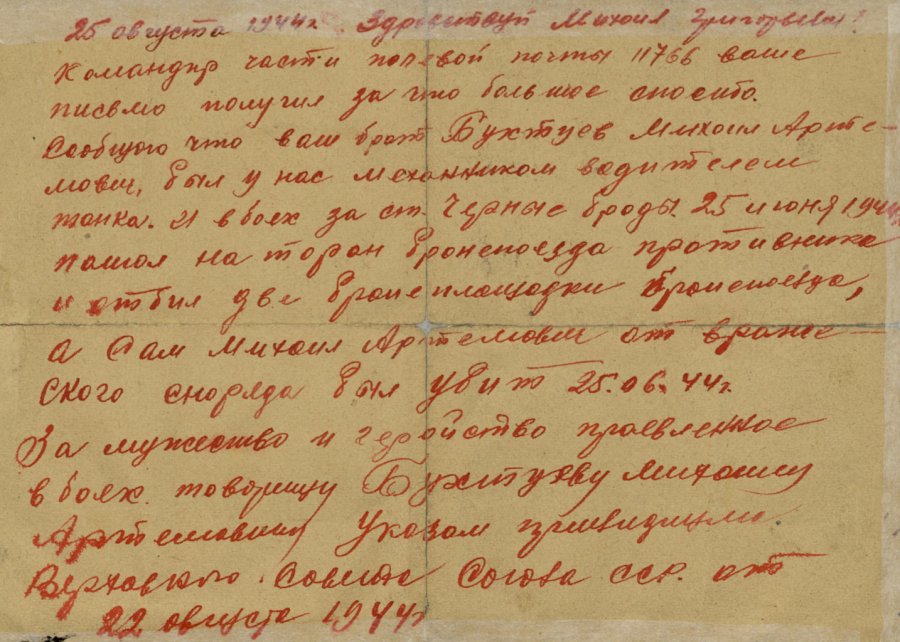 25 августа 1944г. Здравствуй Михаил Григорьевич!
Командир части полевой почты 11766 ваше
письмо получил за что большое спосибо.
Сообщаю что ваш брат Бухтуев Михаил Арте-
мович, был у нас механником водителем
танка. И в боях за ст. Черные броды 25 июня 1944г.
пошол на торан бронепоезда противника
и отбил две бронеплощадки бронепоезда,
а Сам Михаил Артемович от враже-
ского снаряда был убит 25.06.44г.
За мужество и геройство проевленное
в боях товарищу Бухтуеву Михаилу
Артемовичу Указом призидиума
Верховного Совета Союза сср. от
22 августа 1944г